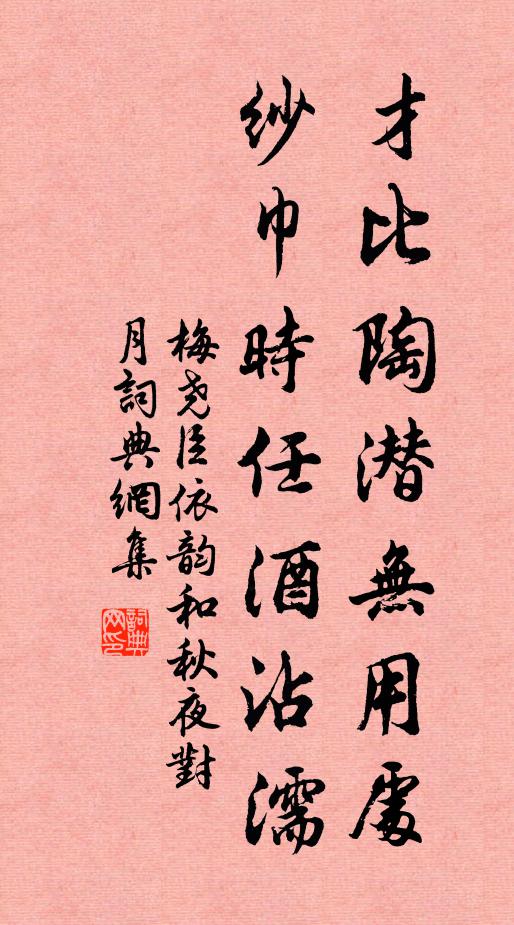 才比陶潜無用處
紗巾時任酒沾濡
梅尧臣依韵和秋夜對
月詞典網集
詞典
网印